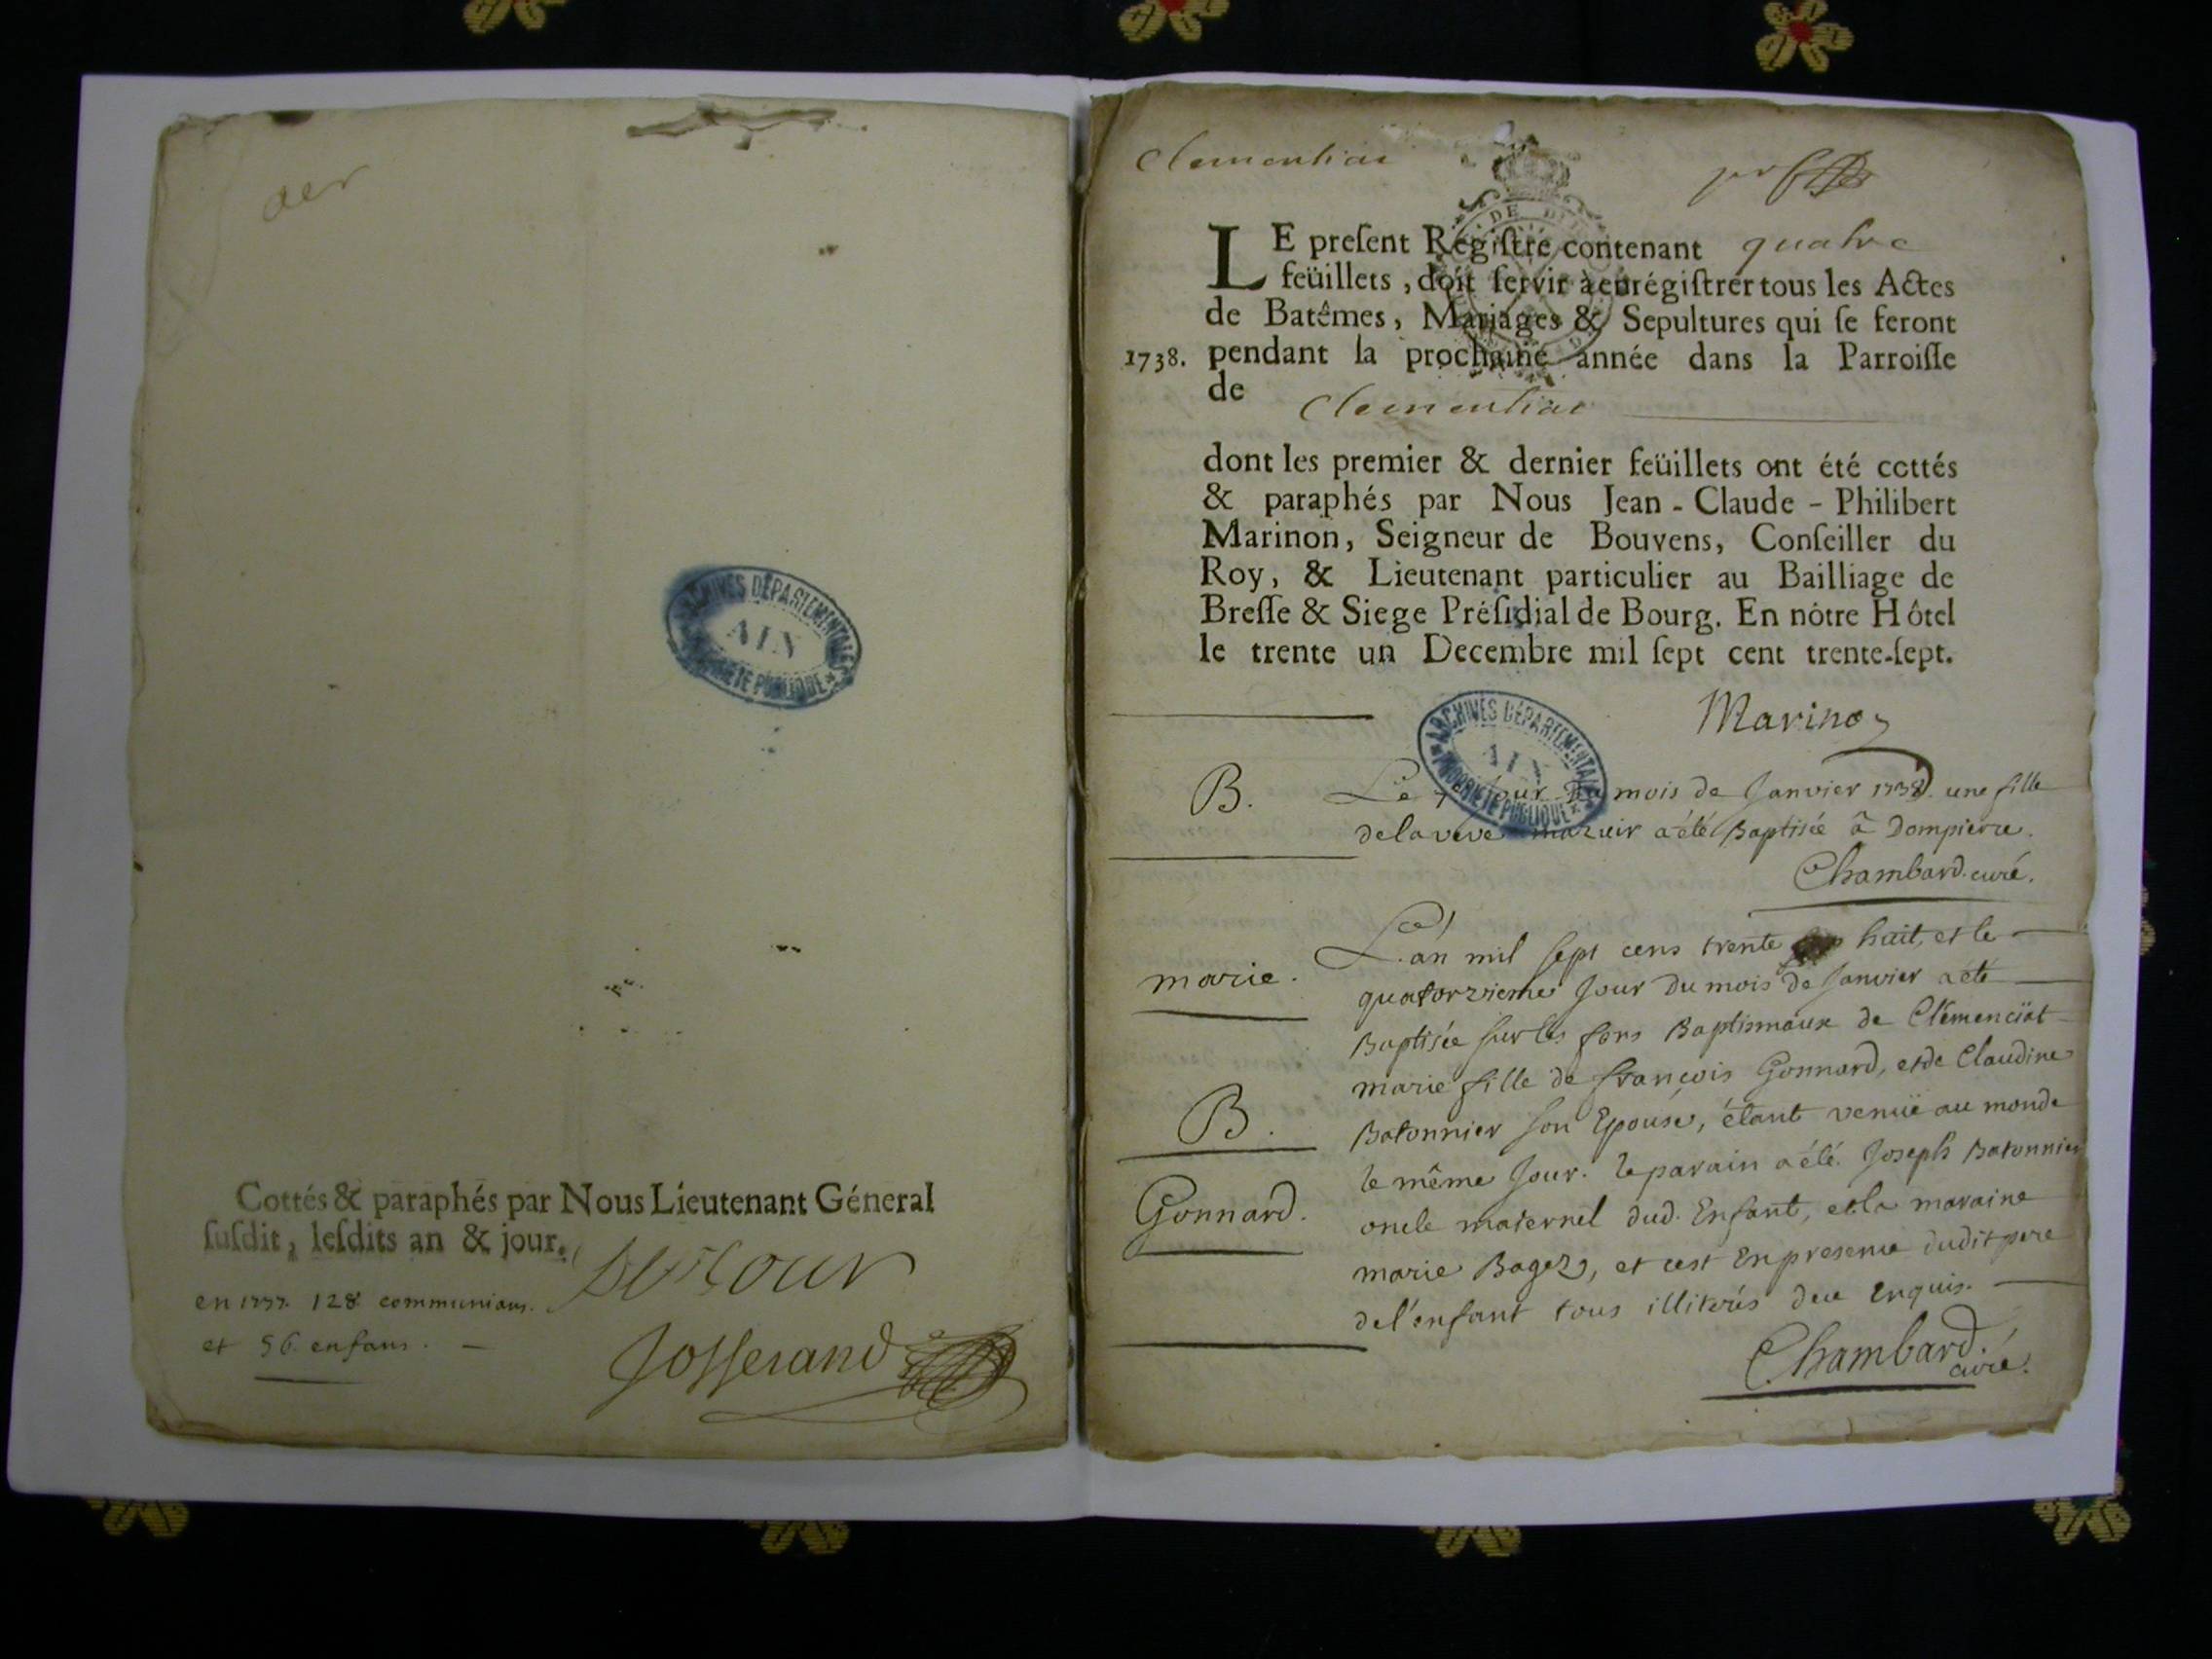 der
ARCHIVES DÉPARTEMENTALES
AIN
PROPRIÉTÉ PUBLIQUE
Cottés & paraphés par Nous Lieutenant Géneral
susdit, lesdits an & jour.
en 1737. 128 communians.
et 56 enfans.
Josserand
Clementiat
LE present Registre contenant quatre
feüillets, doit servir à enrégistrer tous les Actes
de Batêmes, Mariages & Sepultures qui se feront
1738. pendant la prochaine année dans la Parroisse
de Clementiat
dont les premier & dernier feüillets ont été cottés
& paraphés par Nous Jean - Claude - Philibert
Marinon, Seigneur de Bouvens, Conseiller du
Roy, & Lieutenant particulier au Bailliage de
Bresse & Siege Présidial de Bourg. En nôtre Hôtel
le trente un Decembre mil sept cent trente-sept.
Marinon
ARCHIVES DÉPARTEMENTALES
AIN
PROPRIÉTÉ PUBLIQUE
B. Le jour du mois de Janvier 1738. une fille
de la veve mazuir a été Baptisée à Dompierre.
Chambard curé.
L'an mil sept cens trente huit, et le
marie. quatorzieme Jour du mois de Janvier a été
Baptisée sur les fons Baptismaux de Clémenciat
marie fille de françois Gonnard, et de Claudine
B. Batonnier son Epouse, étant venüe au monde
le même Jour. le parain a été Joseph Batonnier
Gonnard. oncle maternel dud. Enfant, et la maraine
marie Bagez, et cest En presence dudit pere
de l'enfant tous illiterés deue enquis.
Chambard
curé.